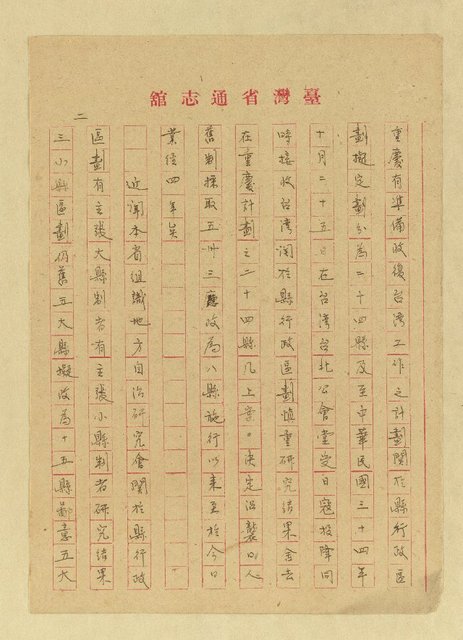 臺灣省通志館
重慶有準備收復台灣工作之計劃關於縣行政區
劃擬定劃分為二十四縣及至中華民國三十四年
十月二十五日在台灣台北公會堂受日寇投降同
時接收台灣關於縣行政區劃慎重研究結果舍去
在重慶計劃之二十四縣几上案。決定沿襲日人
舊制採取五州三廳改為八縣施行以來至於今日
業經四年矣
近聞本省組識地方自治研究會關於縣行政
區劃有主張大縣制者有主張小縣制者研究結果
三小縣區劃仍舊五大縣擬改為十五縣鄙意五大
二